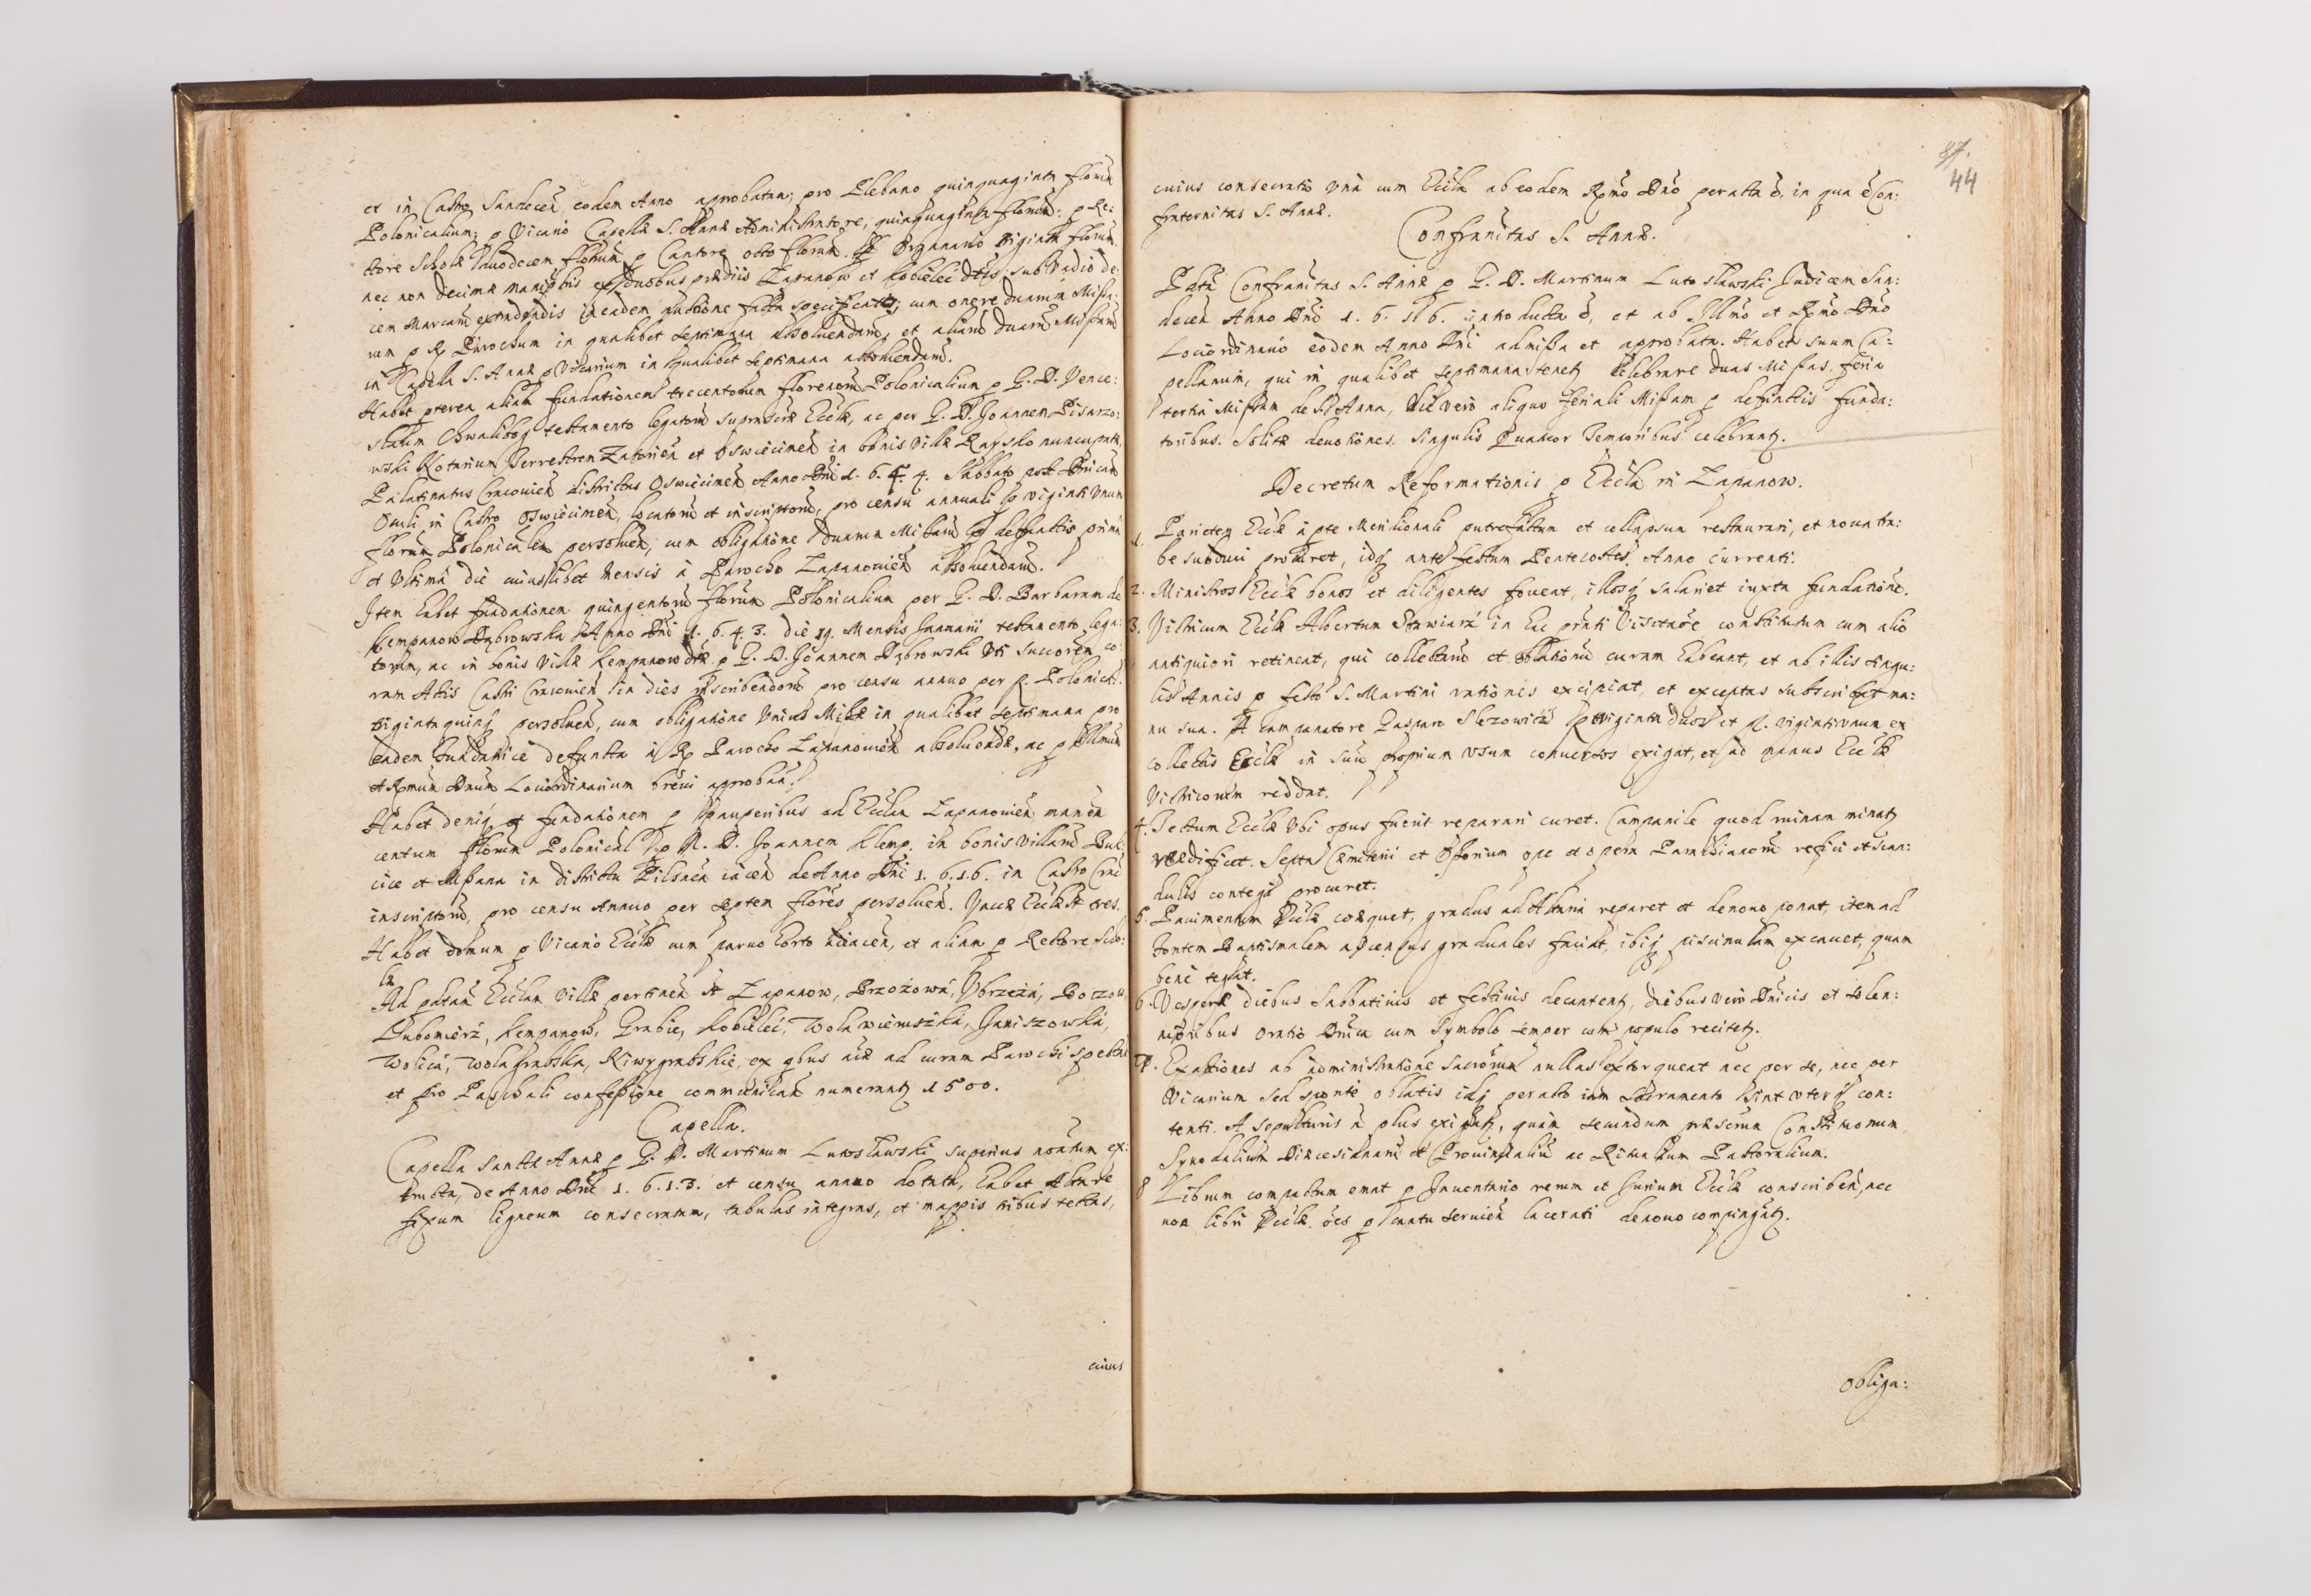 et in Castro Sandecen̄ eodem Anno approbatam; pro Plebano quinquaginta florēn
Polonicalium; p Vicario Capellæ S. Annæ Administratore, quinquaginta florēn: p Re:
ctore Scholæ duodecem florēn p Cantore octo florēn. Organario Viginti florēn
nec non decimæ manip̄lis ex duobus prædiis Łapanow et Kobielec sub Vadio de:
cem Marcarū extradendis in eadem facta specificatis; cum onere duarum Missa:
rum p R. Parochum in qualibet septimana absoluendarū, et aliarū duarū Missarū
in Capella S. Annæ p Vicarium in qualibet septimana absoluendarū.
Habet pterea aliam fundationem trecentorum florenorū Polonicalium p G. D. Vence:
slaum Chwalibog testamento legatorū Ecclæ, ac per G. D. Joannem Pisarzo:
wski Notarium Terrestrem Zatorien̄ et Oswiecimen̄ in bonis Villæ Raysko nuncupatæ,
Palatinatus Cracovien̄ districtus Oswiecimen̄ Anno Dn̄i 1. 6. 4. Sabbato post Dn̄icam
Oculi in Castro Oswiecimen̄, locatorū et inscriptorū, pro censu annuali p viginti Vnum
florēn Polonicalem persoluen̄, cum obligatione duarum Missarū p defunctis prima
et Vltima die cuiuslibet Mensis à Parocho Łapanouien̄ absoluendarū.
Item habet fundationem quingentorū florēn Polonicalium per G. D. Barbaram de
Kempanow Dąbrowska Anno Dn̄i 1. 6. 4. 3. die 19. Mensis Januarii testamento lega:
torum, ac in bonis Villæ Kempanow p G. D. Joannem Dąbrowski Vti Succorem co:
ram Actis Castri Cracouien̄ in dies inscribendorū pro censu annuo per f. Polonical.
triginta quinq persoluen̄, cum obligatione Vnius Missæ in qualibet septimana pro
eadem fundatrice defuncta à R. Parocho Łapanouien̄ absoluendæ, ac p Illmum
et Rmum Dnum Lociordinarium breui approban̄.
Habet deniq et fundationem p pauperibus ad Ecclam Łapanouien̄ manen̄
centum florēn Polonical p R. D. Joannem Klemp. in bonis Villarū
et in districtu Pilsnen̄ iacen̄ de Anno Dn̄i 1. 6. 1. 6. in Castro Crac
inscriptorū, pro censu Annuo per septem flores persoluen̄.
Habet domum p Vicario Ecclæ cum paruo horto adiacen̄, et aliam p Rectore Scho:
læ
Ad pdtam Ecclam Villæ pertinen̄ st Łapanow, Brzozowa, Vbrzeża, Boczow
Lubomierz, Kempanow, Grabie, Kobielec, Wola wieruszka, Janiszowka,
Wolica, Wola grabska, ex qbus ad curam Parochi spectan̄
et pro Paschali confessione communican̄ numerantr 1500.
Capella.
Capella Sanctæ Annæ p G. D. Martinum Lutosławski superius notatum ex:
tructa, de Anno Dn̄i 1. 6. 1. 3. et censu annuo dotata, habet Altare
fixum ligneum consecratum, tabulas integras, et mappis tribus tectas,
cuius
87.
44
cuius consecratio Vnà cum Eccla ab eodem Rmo Dno peracta ē, in qua ē Con:
fraternitas S. Annæ.
Confranitas S. Annæ.
Pdta Confranitas S. Annæ p G. D. Martinum Lutosławski Judicem San:
decen̄ Anno Dn̄i 1. 6. 1 6. introducta ē, et ab Illmo et Rmo Dno
Lociordinario eodem Anno Dn̄i admissa et approbata. Habet suum Ca:
pellanum, qui in qualibet septimana tenetr celebrare duas Missas feria
tertia Missam de S. Anna, die vero aliquo feriali Missam p defunctis funda:
toribus. Solitæ deuotiones singulis Quatuor Temporibus celebrantr.
Decretum Reformationis p Eccla in Łapanow.
1. Parietem Ecclæ à pte Meridionali putrefactum et collapsum restaurari, et noua tra:
be subduci procuret, idq ante festum Pentecostes Anno currenti.
2. Ministros Ecclæ bonos et diligentes foueat, illosq salariet iuxta fundationē.
3. Vitricum Ecclæ Albertum Stawiarz in hac pn̄ti Visitaōe constitutum cum alio
antiquiori retineat, qui collectarū et oblationū curam habeant, et ab illis singu:
lis Annis p festo S. Martini rationes excipiat, et exceptas subscribat ma:
nu sua. A campanatore Gasparo Slezowicz viginta duos et f. viginti vnum ex
collectis Ecclæ in suū proprium vsum conuersos exigat, et ad manus Ecclæ
Vitricorum reddat.
4. Tectum Ecclæ Vbi opus fuerit reparari curet. Campanile quod ruinam minatr
reædificet. Septa Cæmiterii et Ossorium ope et opera Parochianorū refici et scan:
dulis contegi procuret.
5. Pauimentum Ecclæ coæquet, gradus ad Altaria reparet et denouo ponat, item ad
fontem Baptismalem ascensus graduales faciat, ibiq piscinulam excauet, quam
bene tegat.
6. Vesperæ diebus Sabbatinis et festiuis decantentr, diebus vero Dn̄icis et solen:
nioribus oratio Dn̄ica cum Symbolo semper cum populo recitetr.
7. Exactiones ab administratione Sacrorum nullas extorqueat nec per se, nec per
Vicarium sed sponte oblatis idq peracto iam Sacramento sint vterq con:
tenti. A sepulturis ñ plus exigatr, quam secundum præscrum Constitutionum
Synodalium Diæcesianarū et Prouincialiū ac Ritualium Pastoralium.
8 Librum compactum emat p Inuentario rerum et Jurium Ecclæ conscriben̄, nec
non libri Ecclæ. oēs p cantu seruien̄ lacerati denouo compingatr.
Obliga: